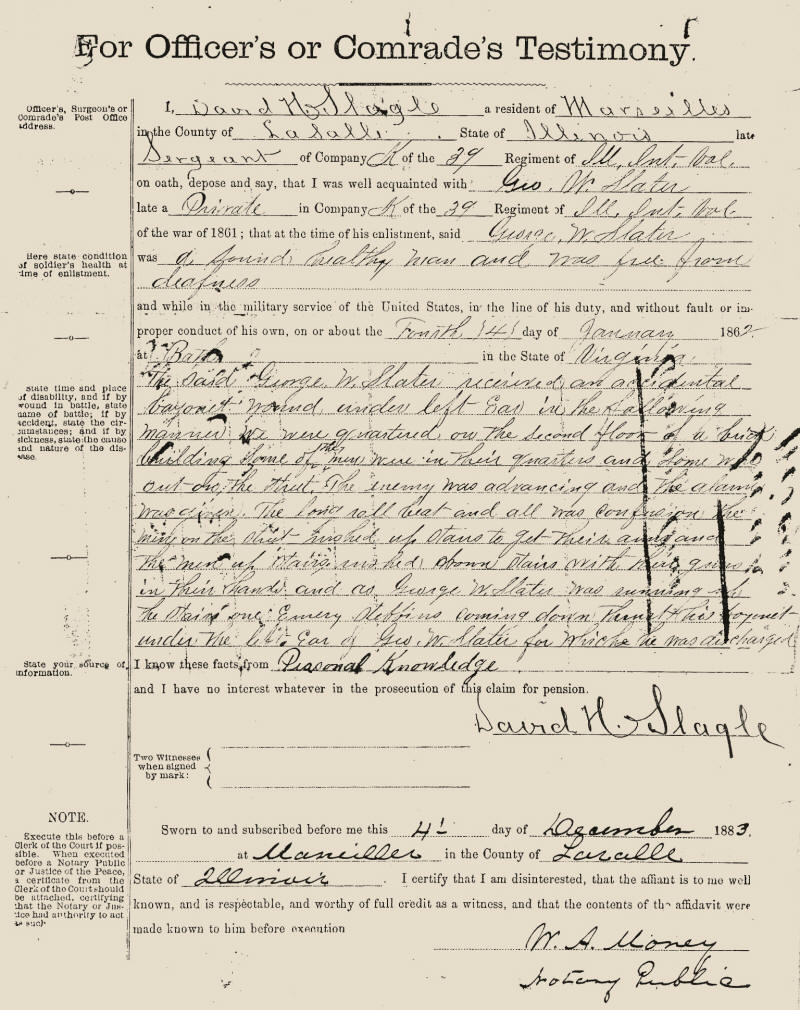 For Officer's or Comrade's Testimony.
Officer's, Surgeon's or
Comrade's Post Office
address.
I, David H. Slagle a resident of Marseilles
in the County of LaSalle. State of Illinois late
Sergeant of Company K of the 39 Regiment of Ill, Inf. Vol.
on oath, depose and say, that I was well acquainted with Geo. W. Slater
late a Private in Company K of the 39 Regiment of Ill, Inf. Vol.
of the war of 1861; that at the time of his enlistment, said George, W. Slater
Here state condition
of soldier's health at
time of enlistment.
was a sound, healthy man and was free from
deafness
and while in the military service of the United States, in the line of his duty, and without fault or im-
proper conduct of his own, on or about the Fourth (4) day of January 1862
at Bath in the State of Virginia
State time and place
of disability, and if by
wound in battle, state
name of battle; if by
accident, state the cir-
cumstances; and if by
sickness, state the cause
and nature of the dis-
ease.
The said George. W. Slater received an accidental
bayonet wound under left Ear in the following
manner we were quartered on the second floor of a brick
building some of the men were in their quarters and some were
out on the street. The enemy was advancing and the alarm
was given. The long roll beat and all was confusion the
men on the street rushed up stairs to get their arms and
the men up stairs rushed down stairs with their guns
in their hands and as George W. Slater was running up
the stairs one Emery coming down thrust his bayonet
under the left Ear of Geo. W. Slater for which he was discharged
State your source of
information.
I know these facts from Personal Knowledge
and I have no interest whatever in the prosecution of this claim for pension.
David H. Slagle
Two Witnesses
when signed
by mark:
NOTE.
Execute this before a
Clerk of the Court if pos-
sible. When executed
before a Notary Public
or Justice of the Peace,
a certificate from the
Clerk of the Court should
be attached, certifying
that the Notary or Jus-
tice had authority to act
as such
Sworn to and subscribed before me this 4' day of December 1883.
at Marseilles in the County of Lasalle
State of Illinois. I certify that I am disinterested, that the affiant is to me well
known, and is respectable, and worthy of full credit as a witness, and that the contents of the affidavit were
made known to him before execution
W. A. Money
Notary Public